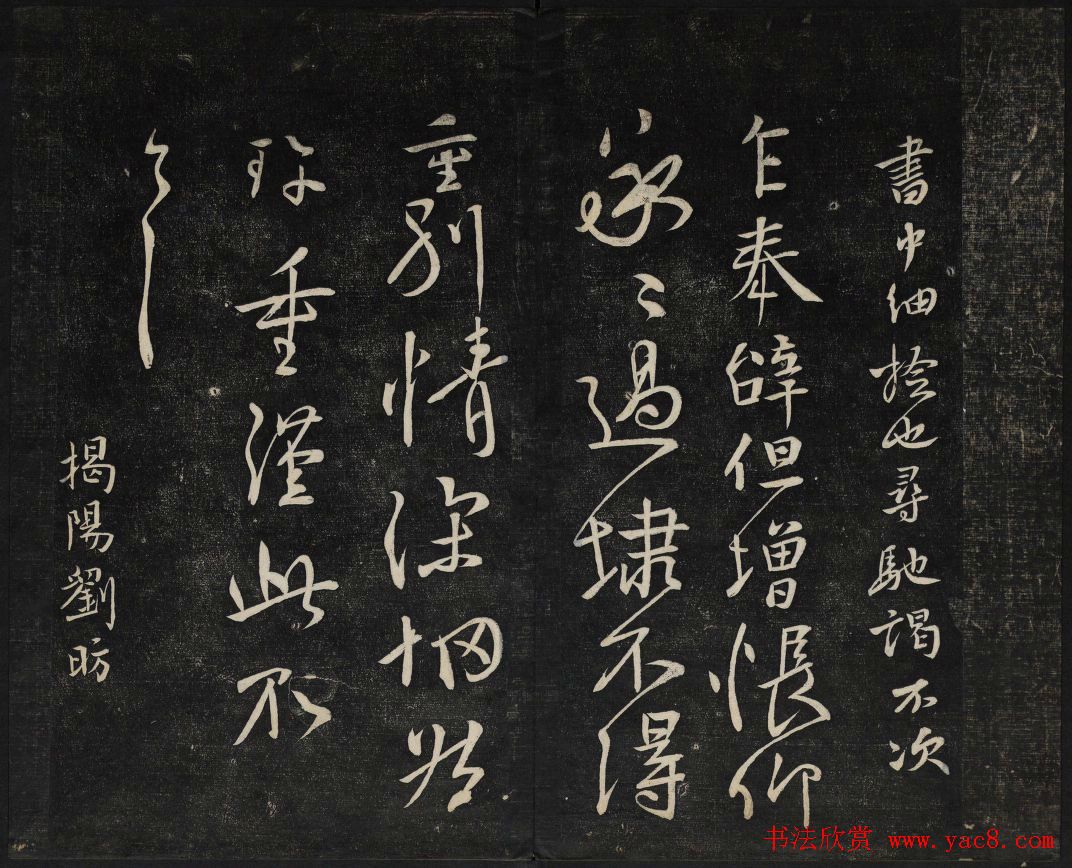 書中細也尋馳謁不次
乍奉辭但增悵仰
承過埭不得
重別情深惘然
珍重謹此不
揭陽劉昉
书法欣赏 www.yac8.com